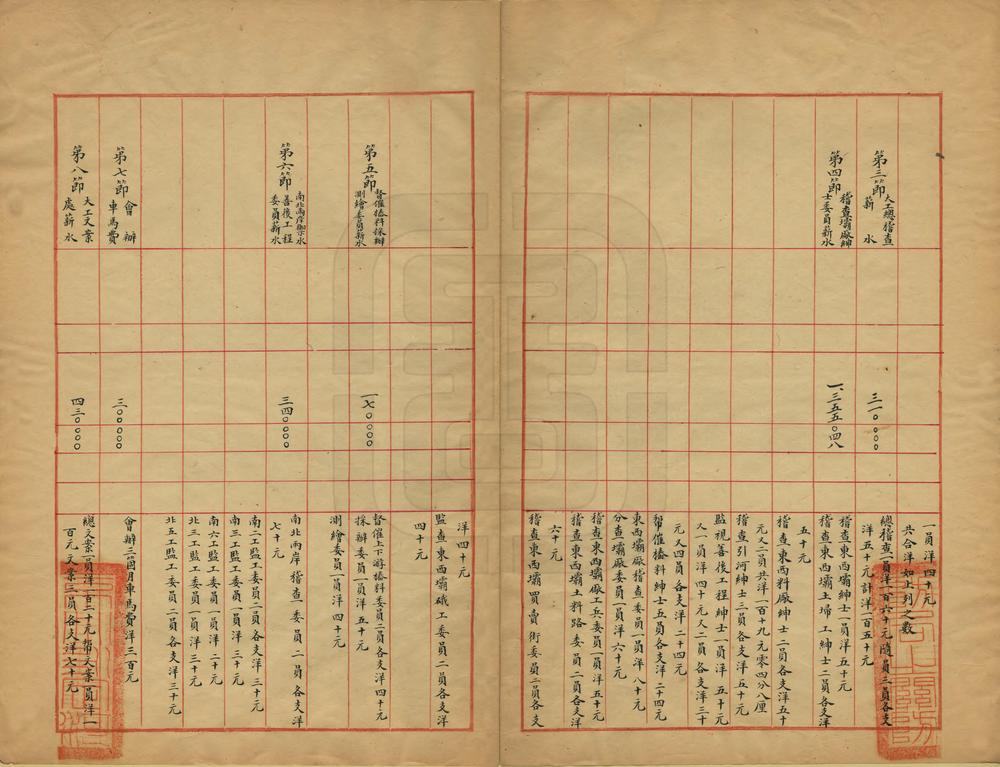 一員洋四十元
共合洋如上列之數
第三節 大工總稽查薪水
三一〇〇〇〇
總稽查一員洋一百六十元隨員三員各支
洋五十元計洋一百五十元
第四節 稽查壩廠紳士委員薪水
一、三五五〇四八
稽查東西壩紳士一員洋五十元
稽查東西壩土埽工紳士二員各支洋
五十元
稽查東西料廠紳士二員各支洋五十
元又二員共洋一百十九元零四分八厘
稽查引河紳士三員各支洋五十元
監視善後工程紳士一員洋五十元
又一員洋四十元又二員各支洋三十
元又四員各支洋二十四元
幫催椿料紳士五員各支洋二十四元
東西壩廠稽查委員一員洋八十元
分查一壩廠委員一員洋六十元
稽查東西壩廠工兵委員一員洋五十元
稽查東西壩土料路委員二員各支洋
六十元
稽查東西壩買賣街委員二員各支
洋四十元
監查東西壩硪工委員二員各支洋
四十元
第五節 督催椿料採辦測繪委員薪水
一七〇〇〇〇
督催上下游椿料委員二員各支洋四十元
採辦委員一員洋五十元
測繪委員一員洋四十元
第六節 南北兩岸禦水善後工程委員薪水
三四〇〇〇〇
南北兩岸稽查一委員二員各支洋
七十元
南二工監工委員二員各支洋三十元
南三工監工委員一員洋三十元
南六工監工委員一員洋二十元
北三工監工委員一員洋三十元
北五工監工委員二員各支洋三十元
第七節 會辦車馬費
三〇〇〇〇
會辦三箇月車馬費洋三百元
第八節 大工文案處薪水
四三〇〇〇〇
總文案一員洋一百二十元幫文案一員洋一
百元文案三員各支洋七十元